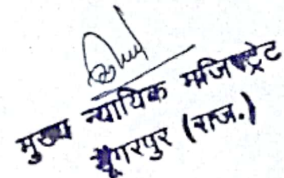 मुख्य न्यायिक मजिस्ट्रेट
डूंगरपुर (राज.)